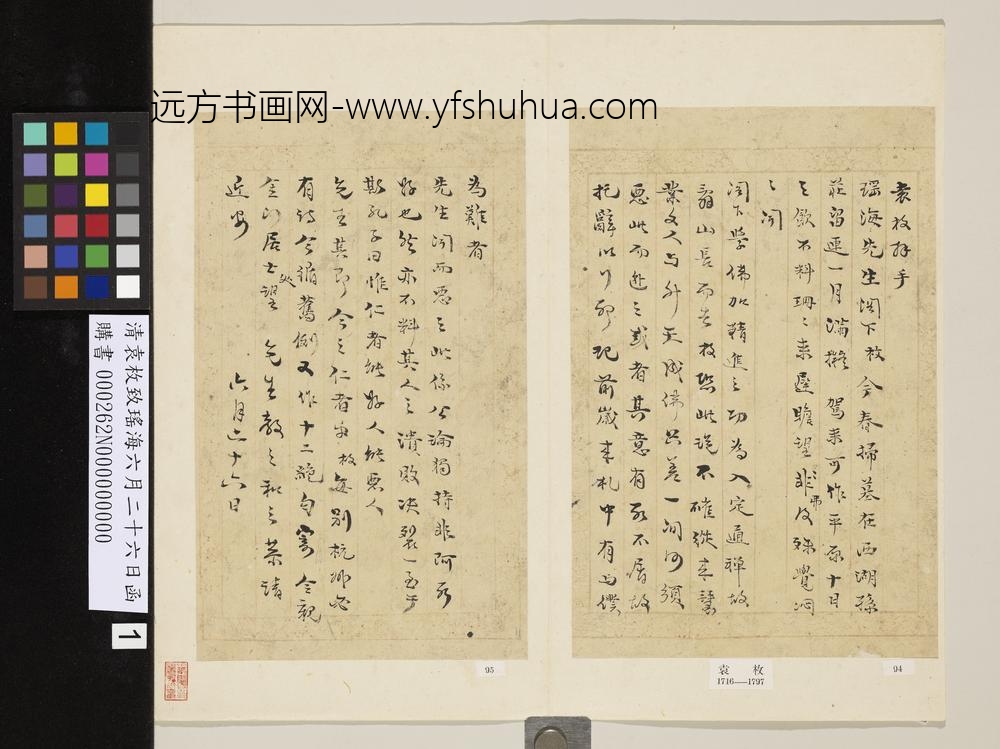 远方书画网-www.yfshuhua.com
袁枚拜手
瑶海先生閣下枚今春掃墓在西湖孫
莊留連一月滿擬駕来可作平原十日
之飲不料珊珊来遲瞻望非及殊覺悶
悶
閣下學佛加精進之功為入定過禪故
山長而去枚此說不確從来
業文人与升天成佛只差一間何須
惡此而逃之或者其意有所不屑故
托辭以行耶記前歲来札中有与僕
為難者
先生聞而惡之此係公論獨持非阿所
好也然亦不料其人之潰敗决裂一至于
斯孔子曰惟仁者能好人能惡人
先生其即今之仁者乎枚每別杭州必
有詩今循舊例又作十二絶句寄令親
金居士處望先生教之和之恭請
近安
六月二十六日
清袁枚致瑤海六月二十六日函
購書 000262N000000000
1
95
袁 枚
1716—1797
94